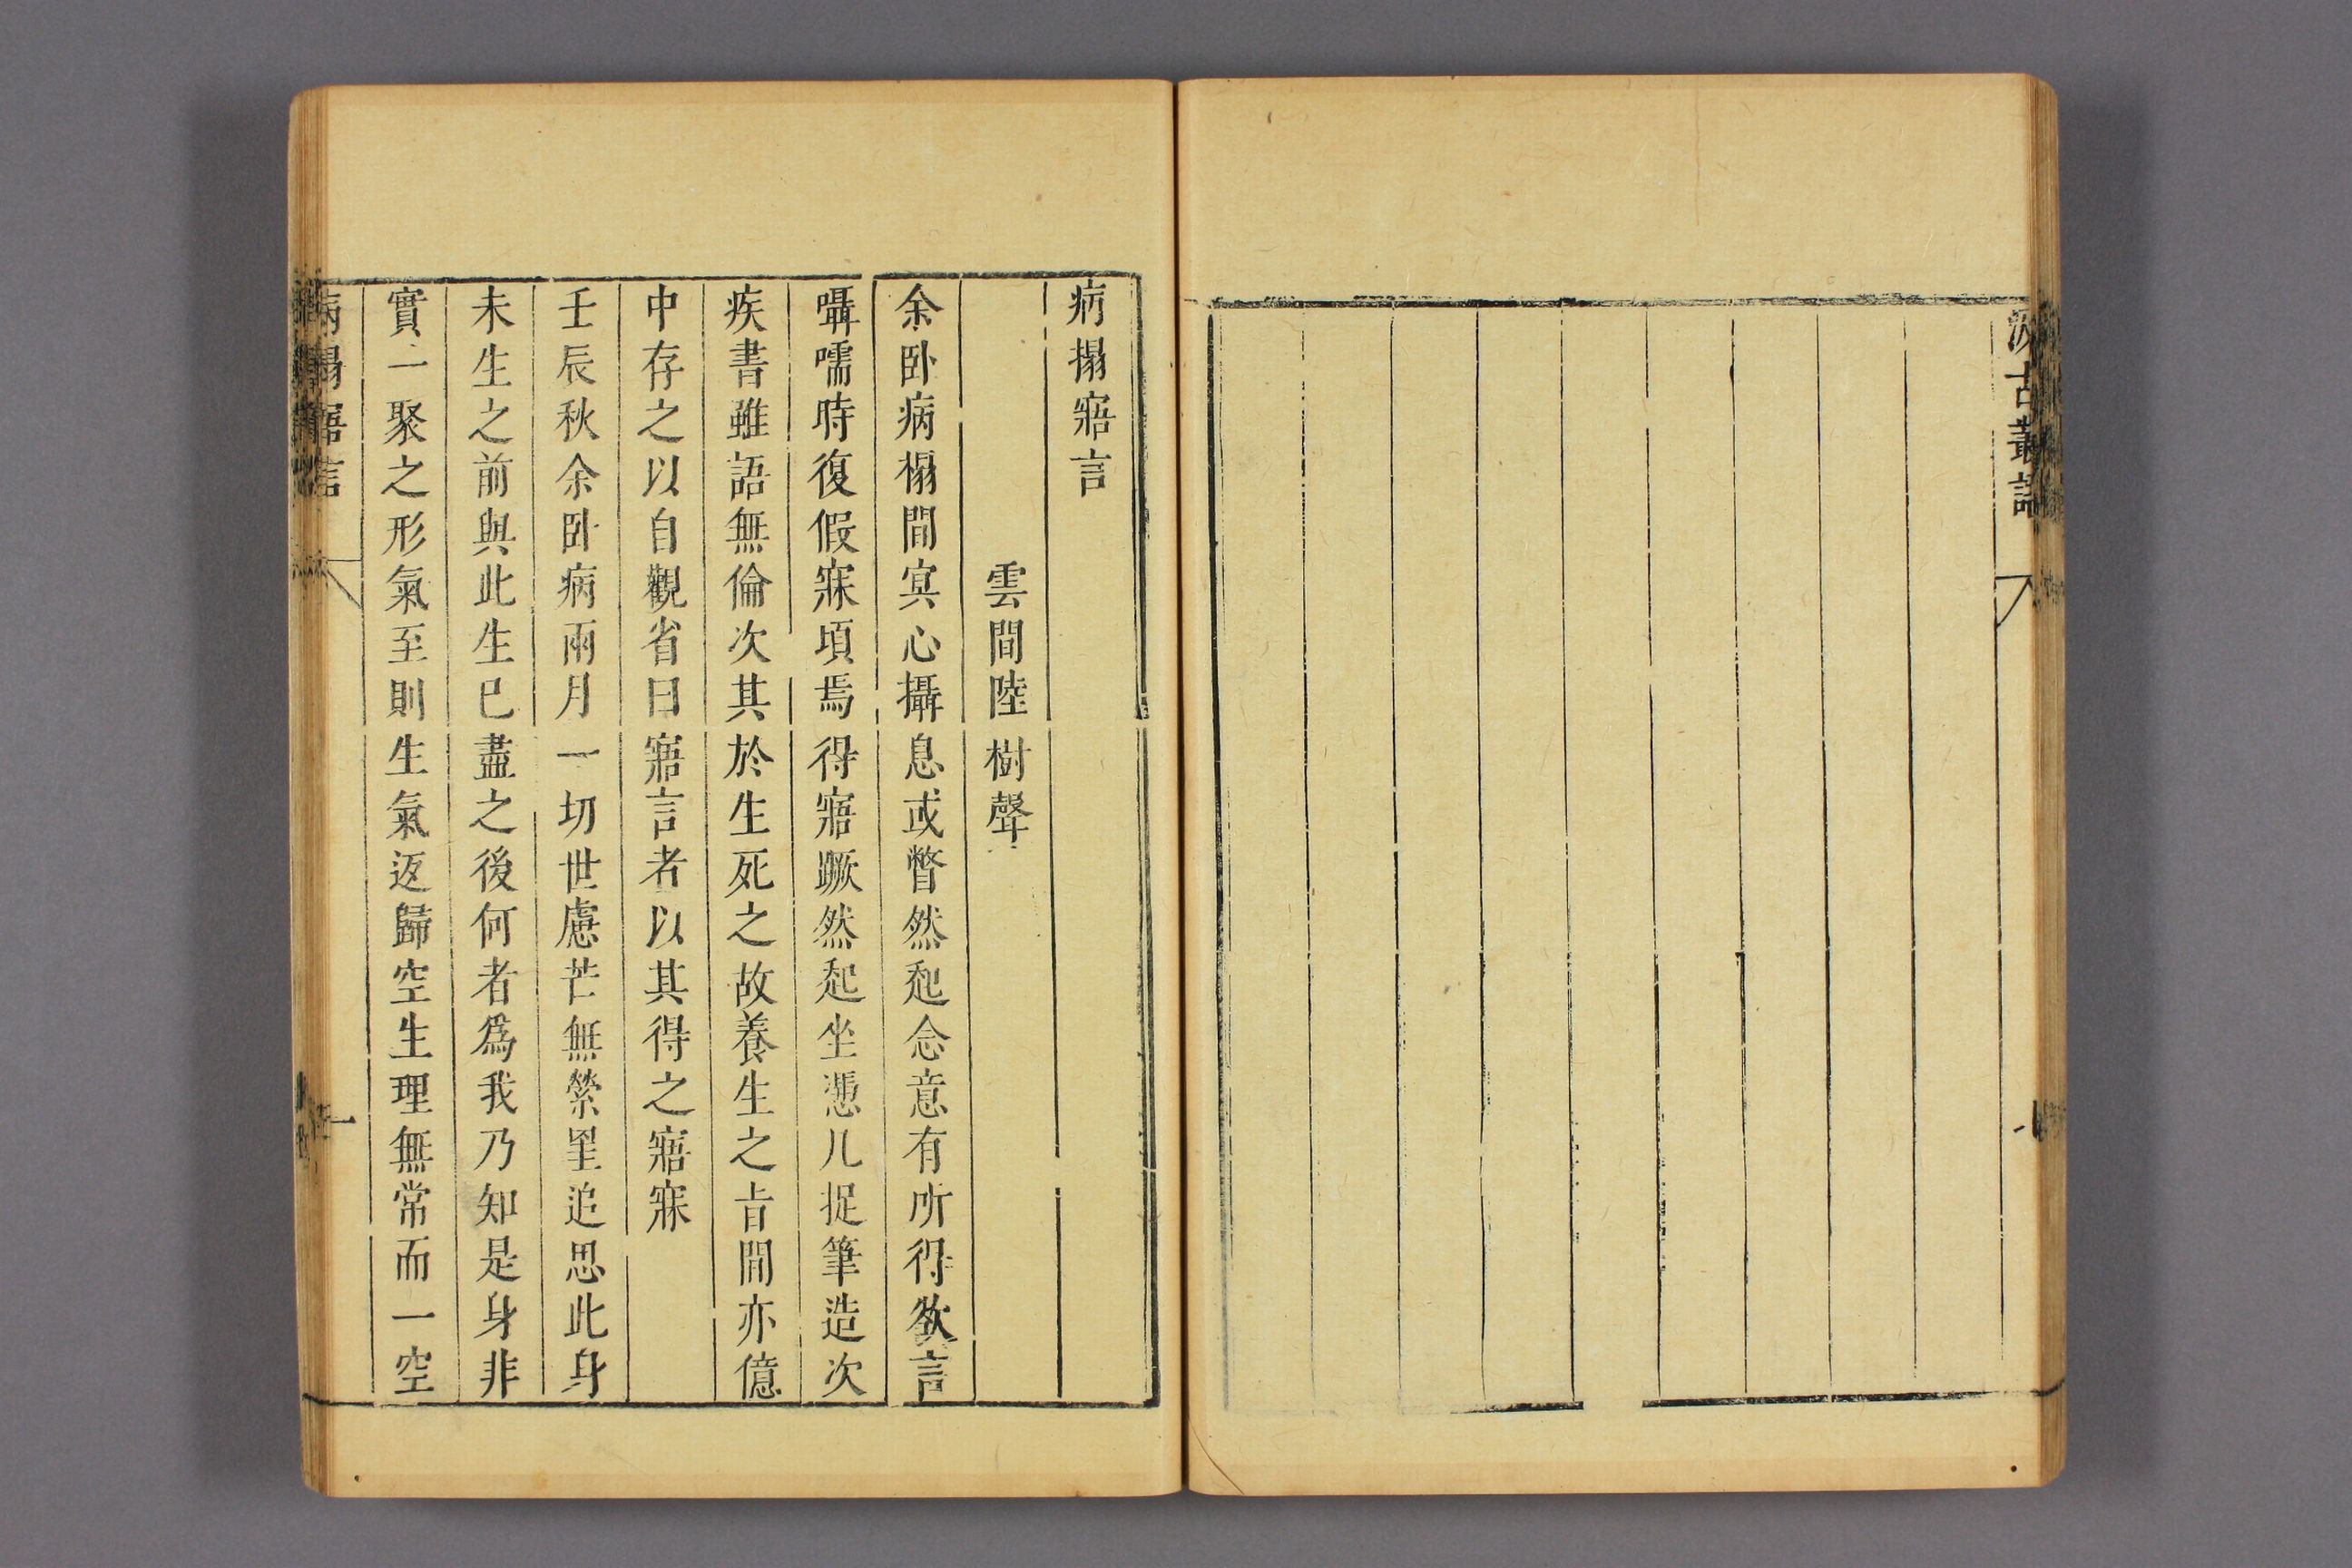 汲古叢語
病搨寤言
雲間陸樹聲
余卧病榻間冥心攝息或瞥然起念意有所得欲言
囁嚅時復假寐頃焉得寤蹶然起坐憑几捉筆造次
疾書雖語無倫次其於生死之故養生之旨間亦億
中存之以自觀省曰寤言者以其得之寤寐
壬辰秋余卧病兩月一切世慮芒無縈罣追思此身
未生之前與此生已盡之後何者爲我乃知是身非
實一聚之形氣至則生氣返歸空生理無常而一空
病榻寤言
一